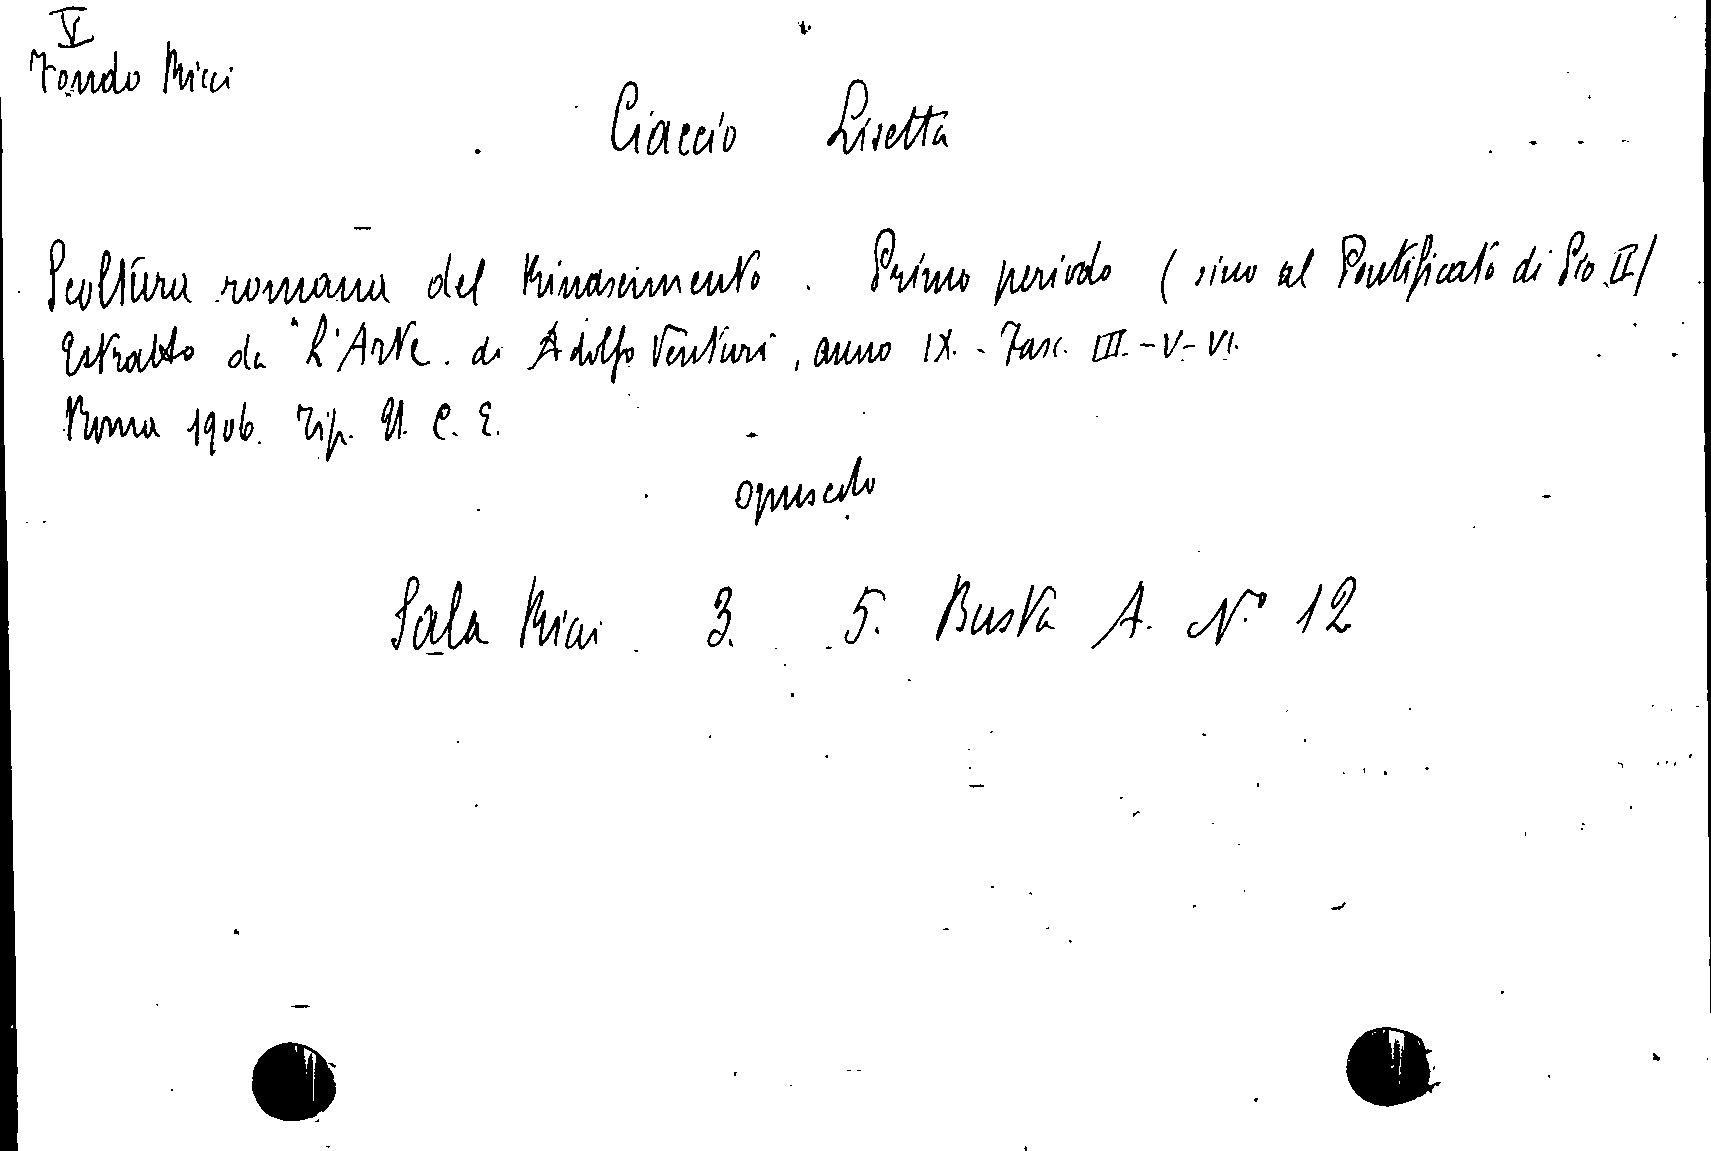 V
Fondo Ricci
Ciaccio Lisetta
Scoltura romana del Rinascimento. Primo periodo (sino al Pontificato di Pio II)
Estratto da "L'Arte. di Adolfo Venturi, anno IX. - Fasc. III. - V - VI.
Roma 1906. Tip. U. C. E.
opuscolo
Sala Ricci 3. 5. Busta A. N.° 12